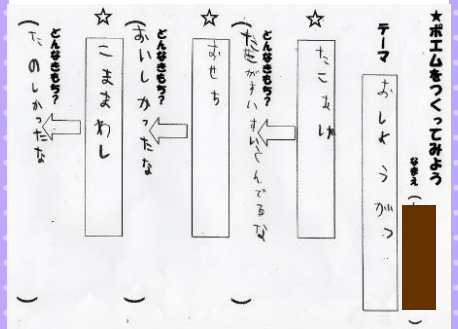 ★ポエムをつくってみよう
なまえ（　）
テーマ
おしょうがつ
☆
たこあげ
どんなきもち？
（たこがすいすいとんでるな）
☆
おせち
どんなきもち？
（おいしかったな）
☆
こままわし
どんなきもち？
（たのしかったな）